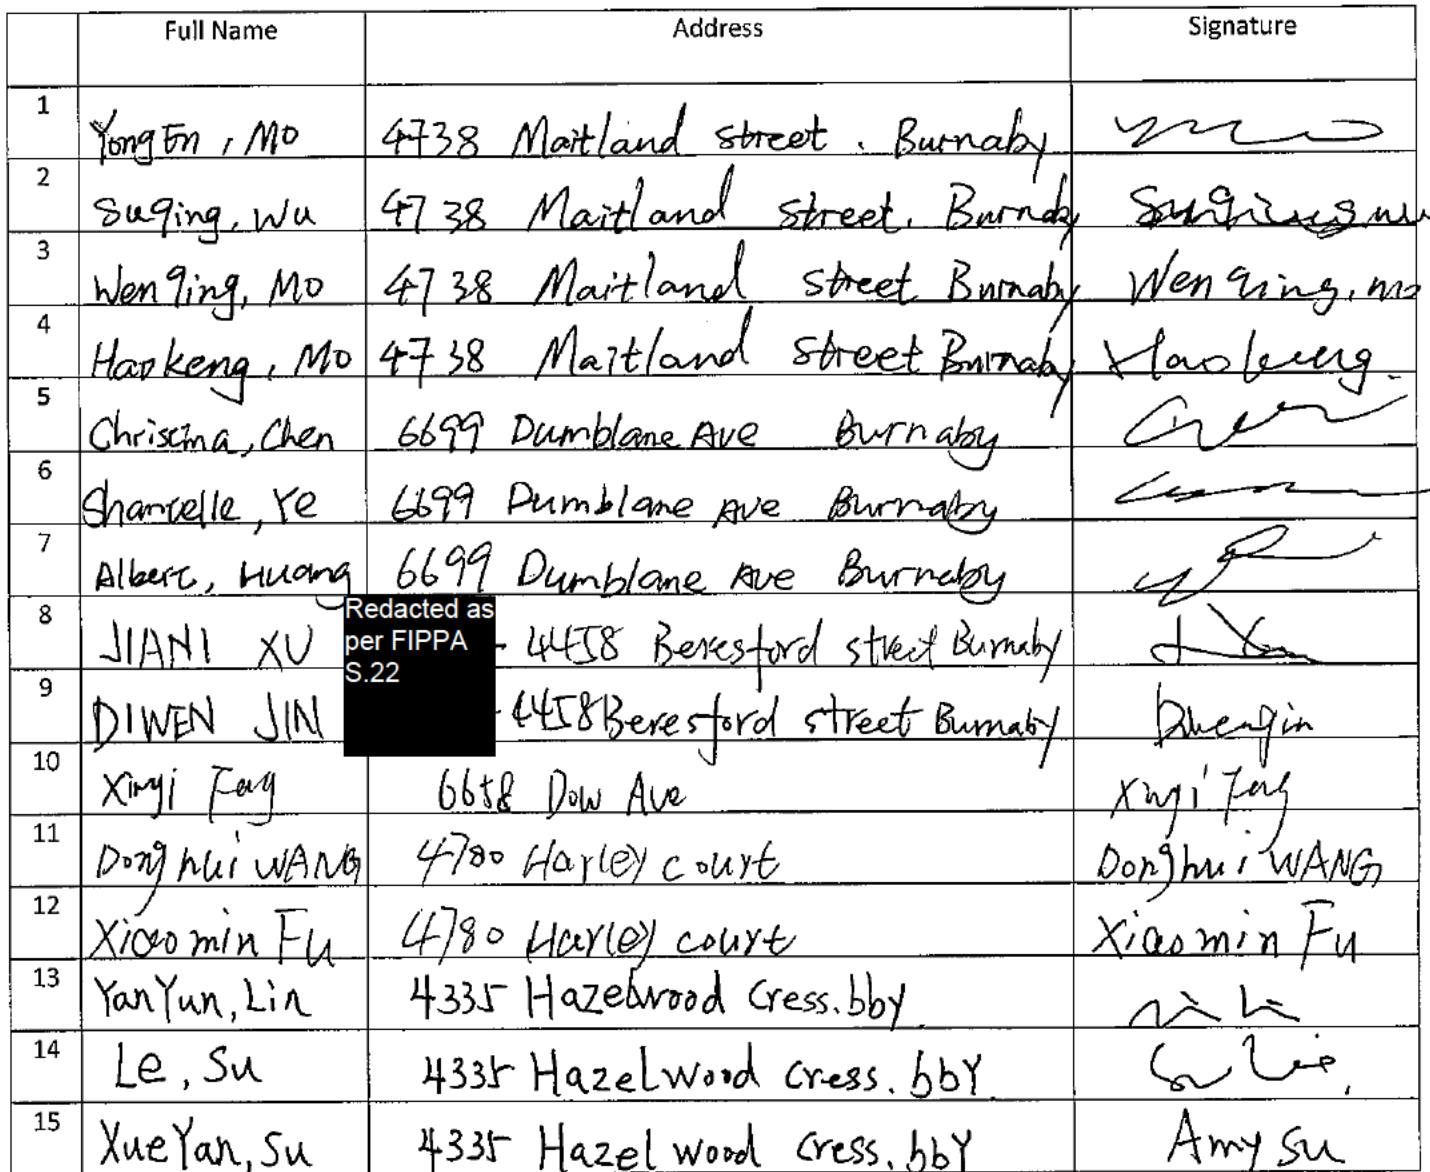 Full Name Address Signature
1 YongEn, Mo 4738 Maitland street. Burnaby
2 SuQing, Wu 4738 Maitland street. Burnaby SuQing wu
3 WenQing, Mo 4738 Maitland street Burnaby WenQing, mo
4 Haokeng, Mo 4738 Maitland street Burnaby Haokeng.
5 Chriscina, Chen 6699 Dumblane Ave Burnaby
6 Sharcelle, Ye 6699 Dumblane Ave Burnaby
7 Alberc, Huang 6699 Dumblane Ave Burnaby
Redacted as
per FIPPA
S.22
8 JIANI XU - 4458 Beresford street Burnaby
9 DIWEN JIN - 4458 Beresford street Burnaby
10 Xinyi Fang 6658 Dow Ave Xinyi Fang
11 Donghui WANG 4780 Harley court Donghui WANG
12 Xiaomin Fu 4780 Harley court Xiaomin Fu
13 YanYun, Lin 4335 Hazelwood Cress. bby
14 Le, Su 4335 Hazelwood Cress. bbY
15 XueYan, Su 4335 Hazelwood Cress. bbY Amy Su